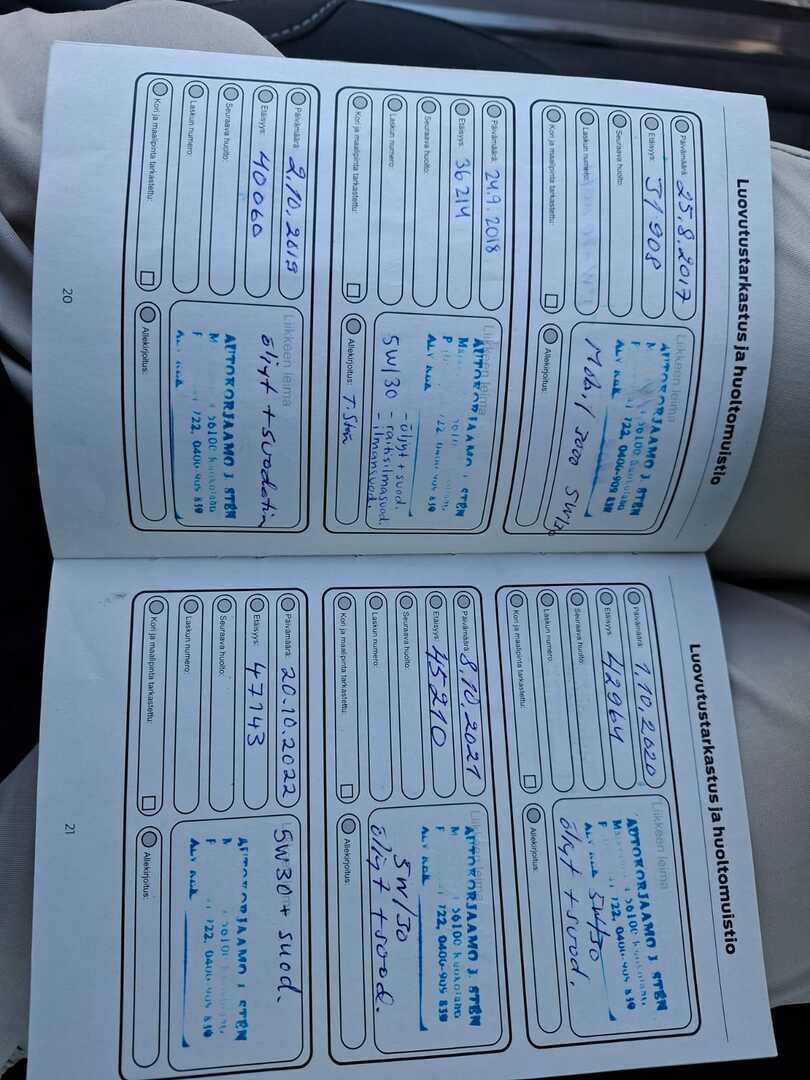 Luovutustarkastus ja huoltomuistio
Päivämäärä: 25.8.2017
Etäisyys: 31908
Seuraava huolto:
Laskun numero:
Kori ja maalipinta tarkastettu:
Liikkeen leima
AUTOKORJAAMO J. STÉN
56100
722, 0400-909 830
ALV
Mobil 3000 5W/30
Allekirjoitus:
Päivämäärä: 24.9.2018
Etäisyys: 36214
Seuraava huolto:
Laskun numero:
Kori ja maalipinta tarkastettu:
Liikkeen leima
AUTOKORJAAMO J. STÉN
ALV
5W/30 - öljyt + suod.
- raitisilmasuod.
- ilmansuod.
Allekirjoitus: T. Stén
Päivämäärä: 2.10.2019
Etäisyys: 40060
Seuraava huolto:
Laskun numero:
Kori ja maalipinta tarkastettu:
Liikkeen leima
öljyt + suodatin
AUTOKORJAAMO J. STÉN
56100
722, 0400-909 830
Allekirjoitus:
20
Luovutustarkastus ja huoltomuistio
Päivämäärä: 1.10.2020
Etäisyys: 42964
Seuraava huolto:
Laskun numero:
Kori ja maalipinta tarkastettu:
Liikkeen leima
AUTOKORJAAMO J. STÉN
56100
722, 0400-909 830
ALV
5W/30
öljyt + suod.
Allekirjoitus:
Päivämäärä: 8.10.2021
Etäisyys: 45210
Seuraava huolto:
Laskun numero:
Kori ja maalipinta tarkastettu:
Liikkeen leima
AUTOKORJAAMO J. STÉN
56100
722, 0400-909 830
ALV
5W/30
öljyt + suod.
Allekirjoitus:
Päivämäärä: 20.10.2022
Etäisyys: 47143
Seuraava huolto:
Laskun numero:
Kori ja maalipinta tarkastettu:
5W30 + suod.
AUTOKORJAAMO J. STÉN
56100
722, 0400-909 830
ALV
Allekirjoitus:
21